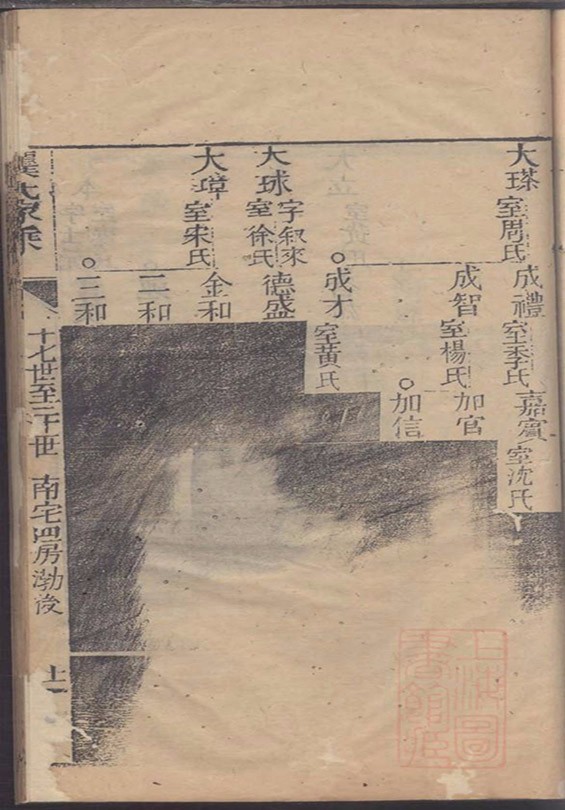 大琛室周氏
成禮室季氏
嘉賓室沈氏
成智室楊氏
加官
加信
成才室黃氏
大球字叙來室徐氏
德盛
大璋室宋氏
金和
二和
三和
氏家乘
十七世至二十世 南宅四房渤後
上
上海圖書館藏